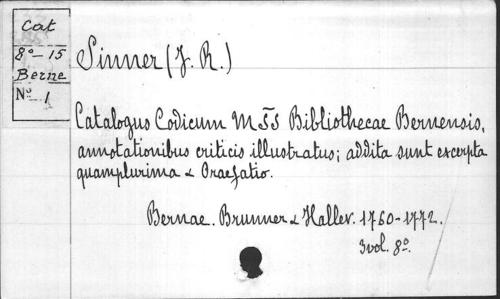 Cat
8º-15
Berne
Nº 1
Sinner (J. R.)
Catalogus Codicum MSS Bibliothecae Bernensis,
annotationibus criticis illustratus; addita sunt excerpta
quamplurima & Praefatio.
Bernae. Brunner & Haller. 1760-1772.
3 vol. 8º.